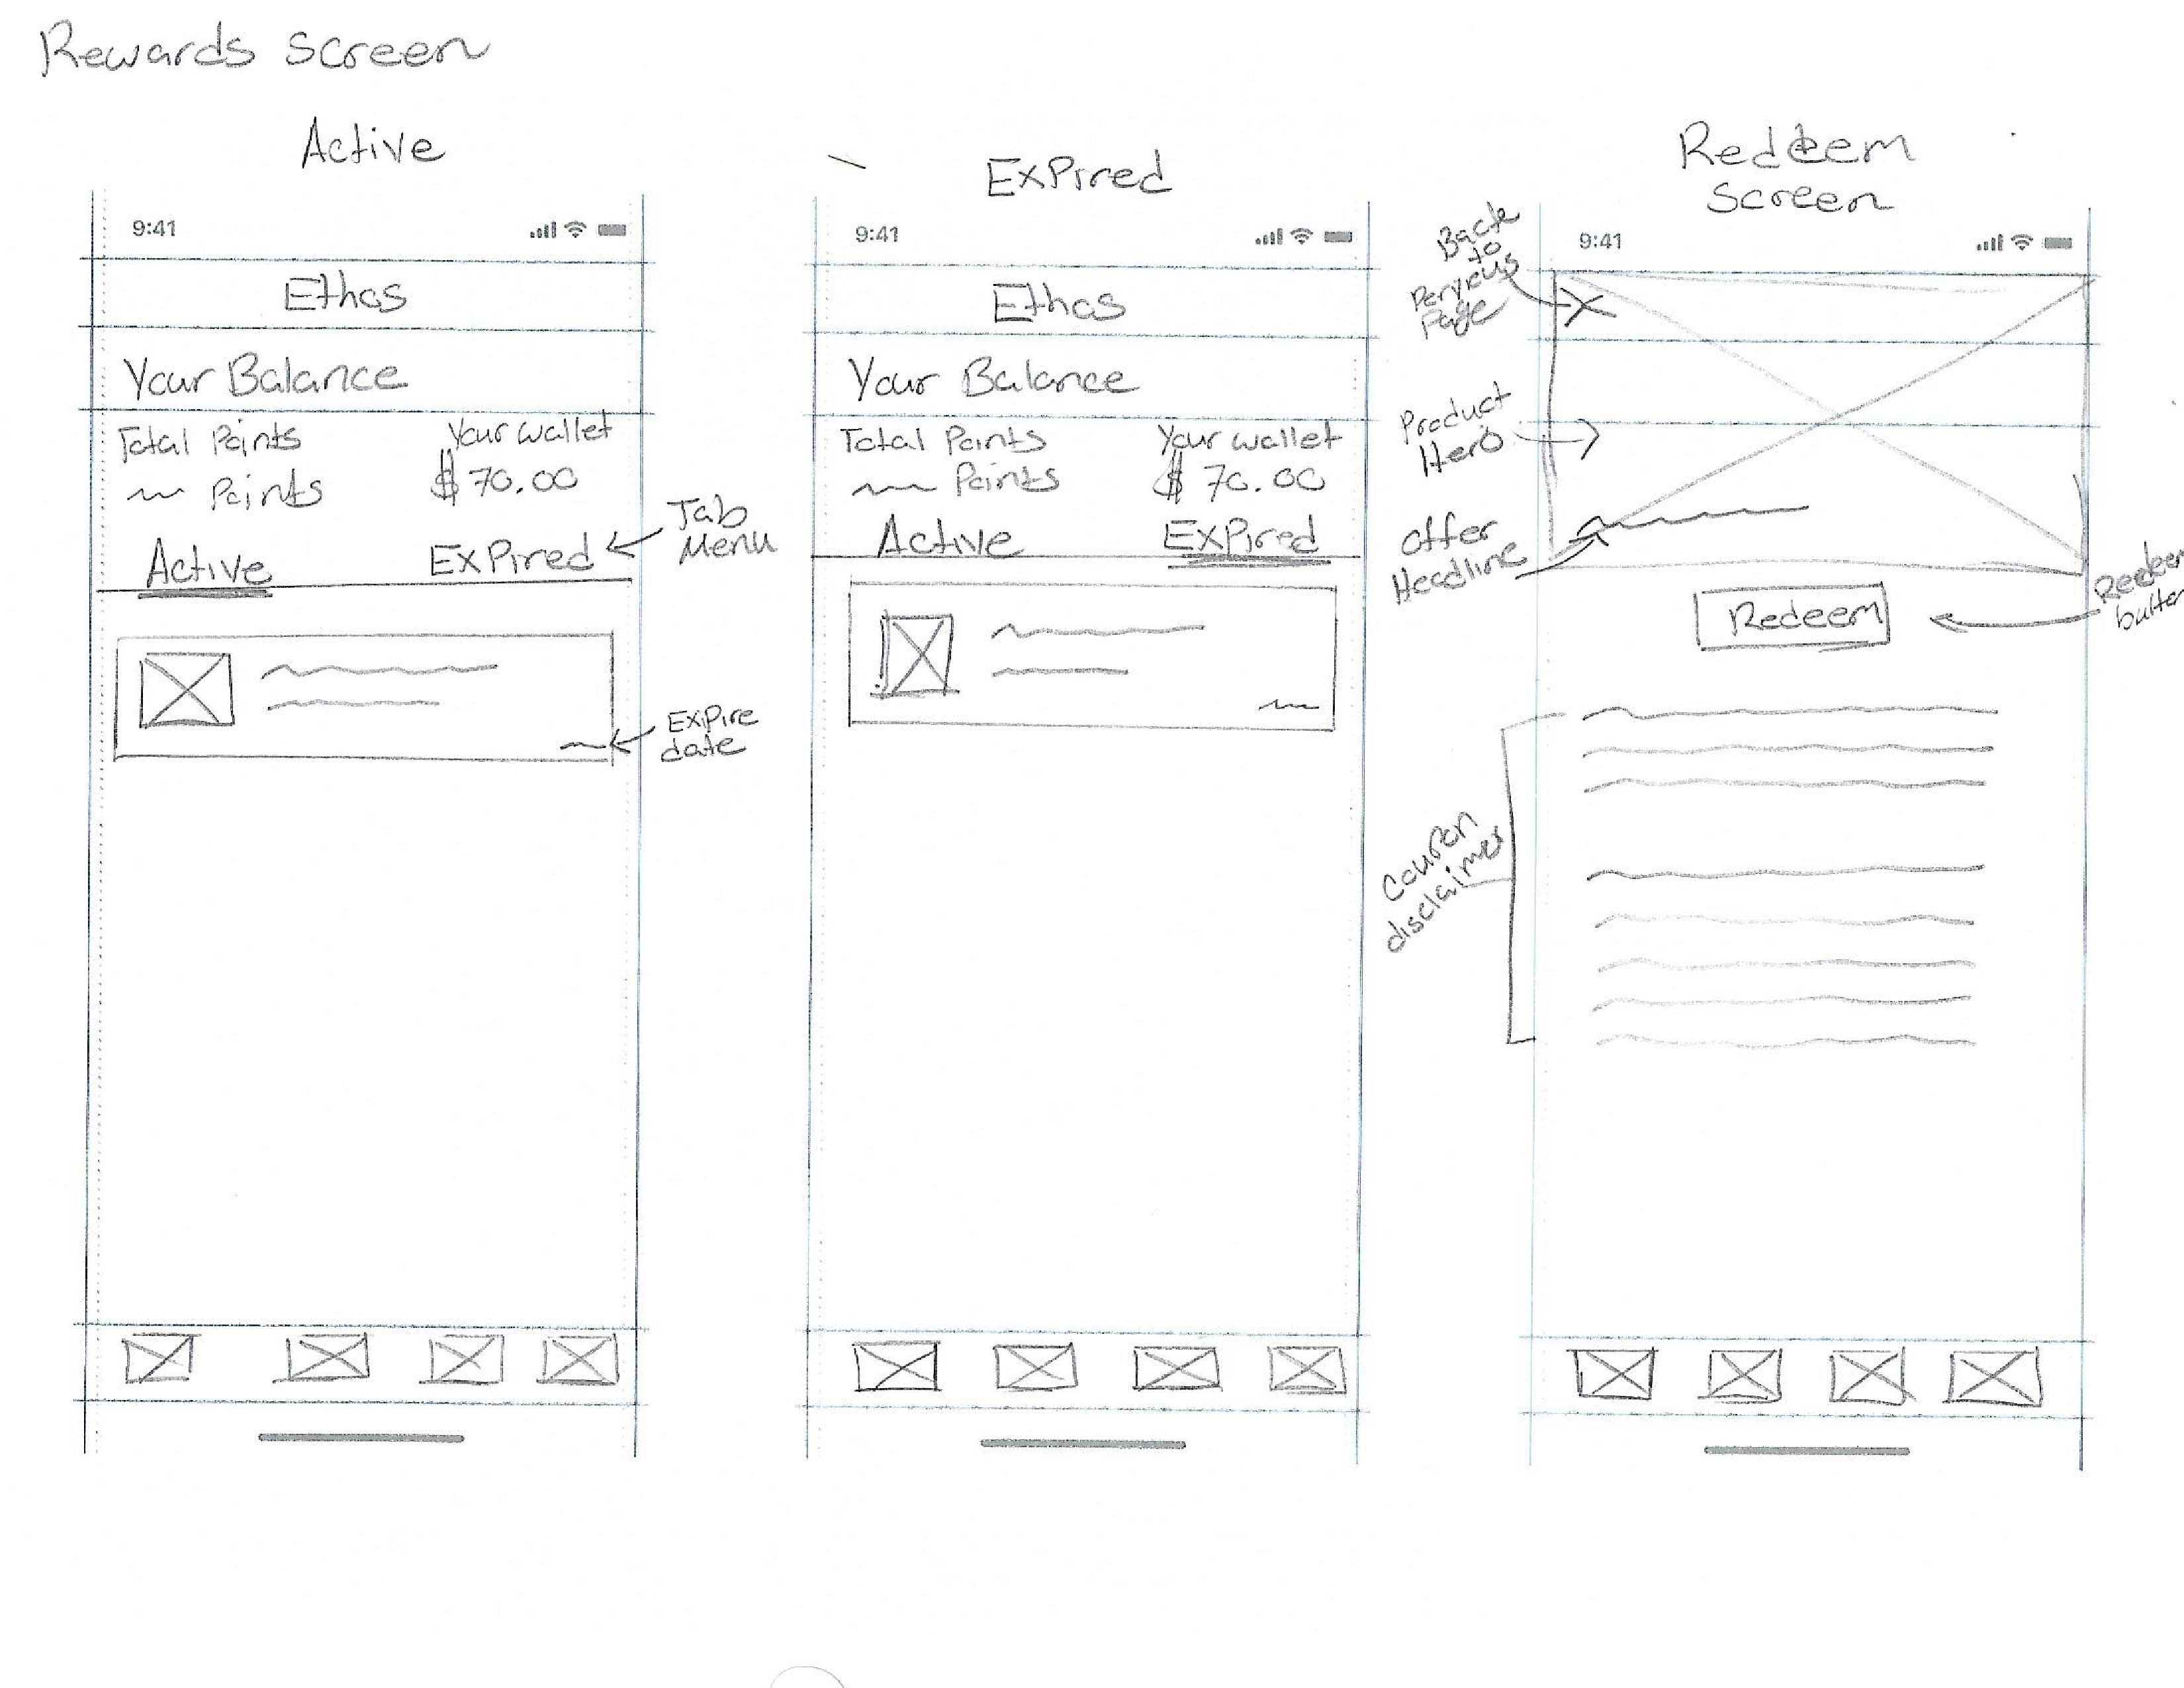 Rewards screen
Active
9:41
Ethos
Your Balance
Total Points
Your wallet
Points
$70.00
Active
Expired
Tab
Menu
Expire
date
Expired
9:41
Ethos
Your Balance
Total Points
Your wallet
Points
$70.00
Active
Expired
Redeem
screen
9:41
Back
to
Pervious
Page
Product
Hero
Offer
Headline
Redeem
Redeem
button
Coupon
disclaimer